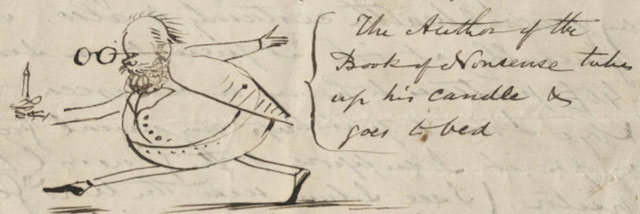 The Author of the
Book of Nonsense takes
up his candle &
goes to bed